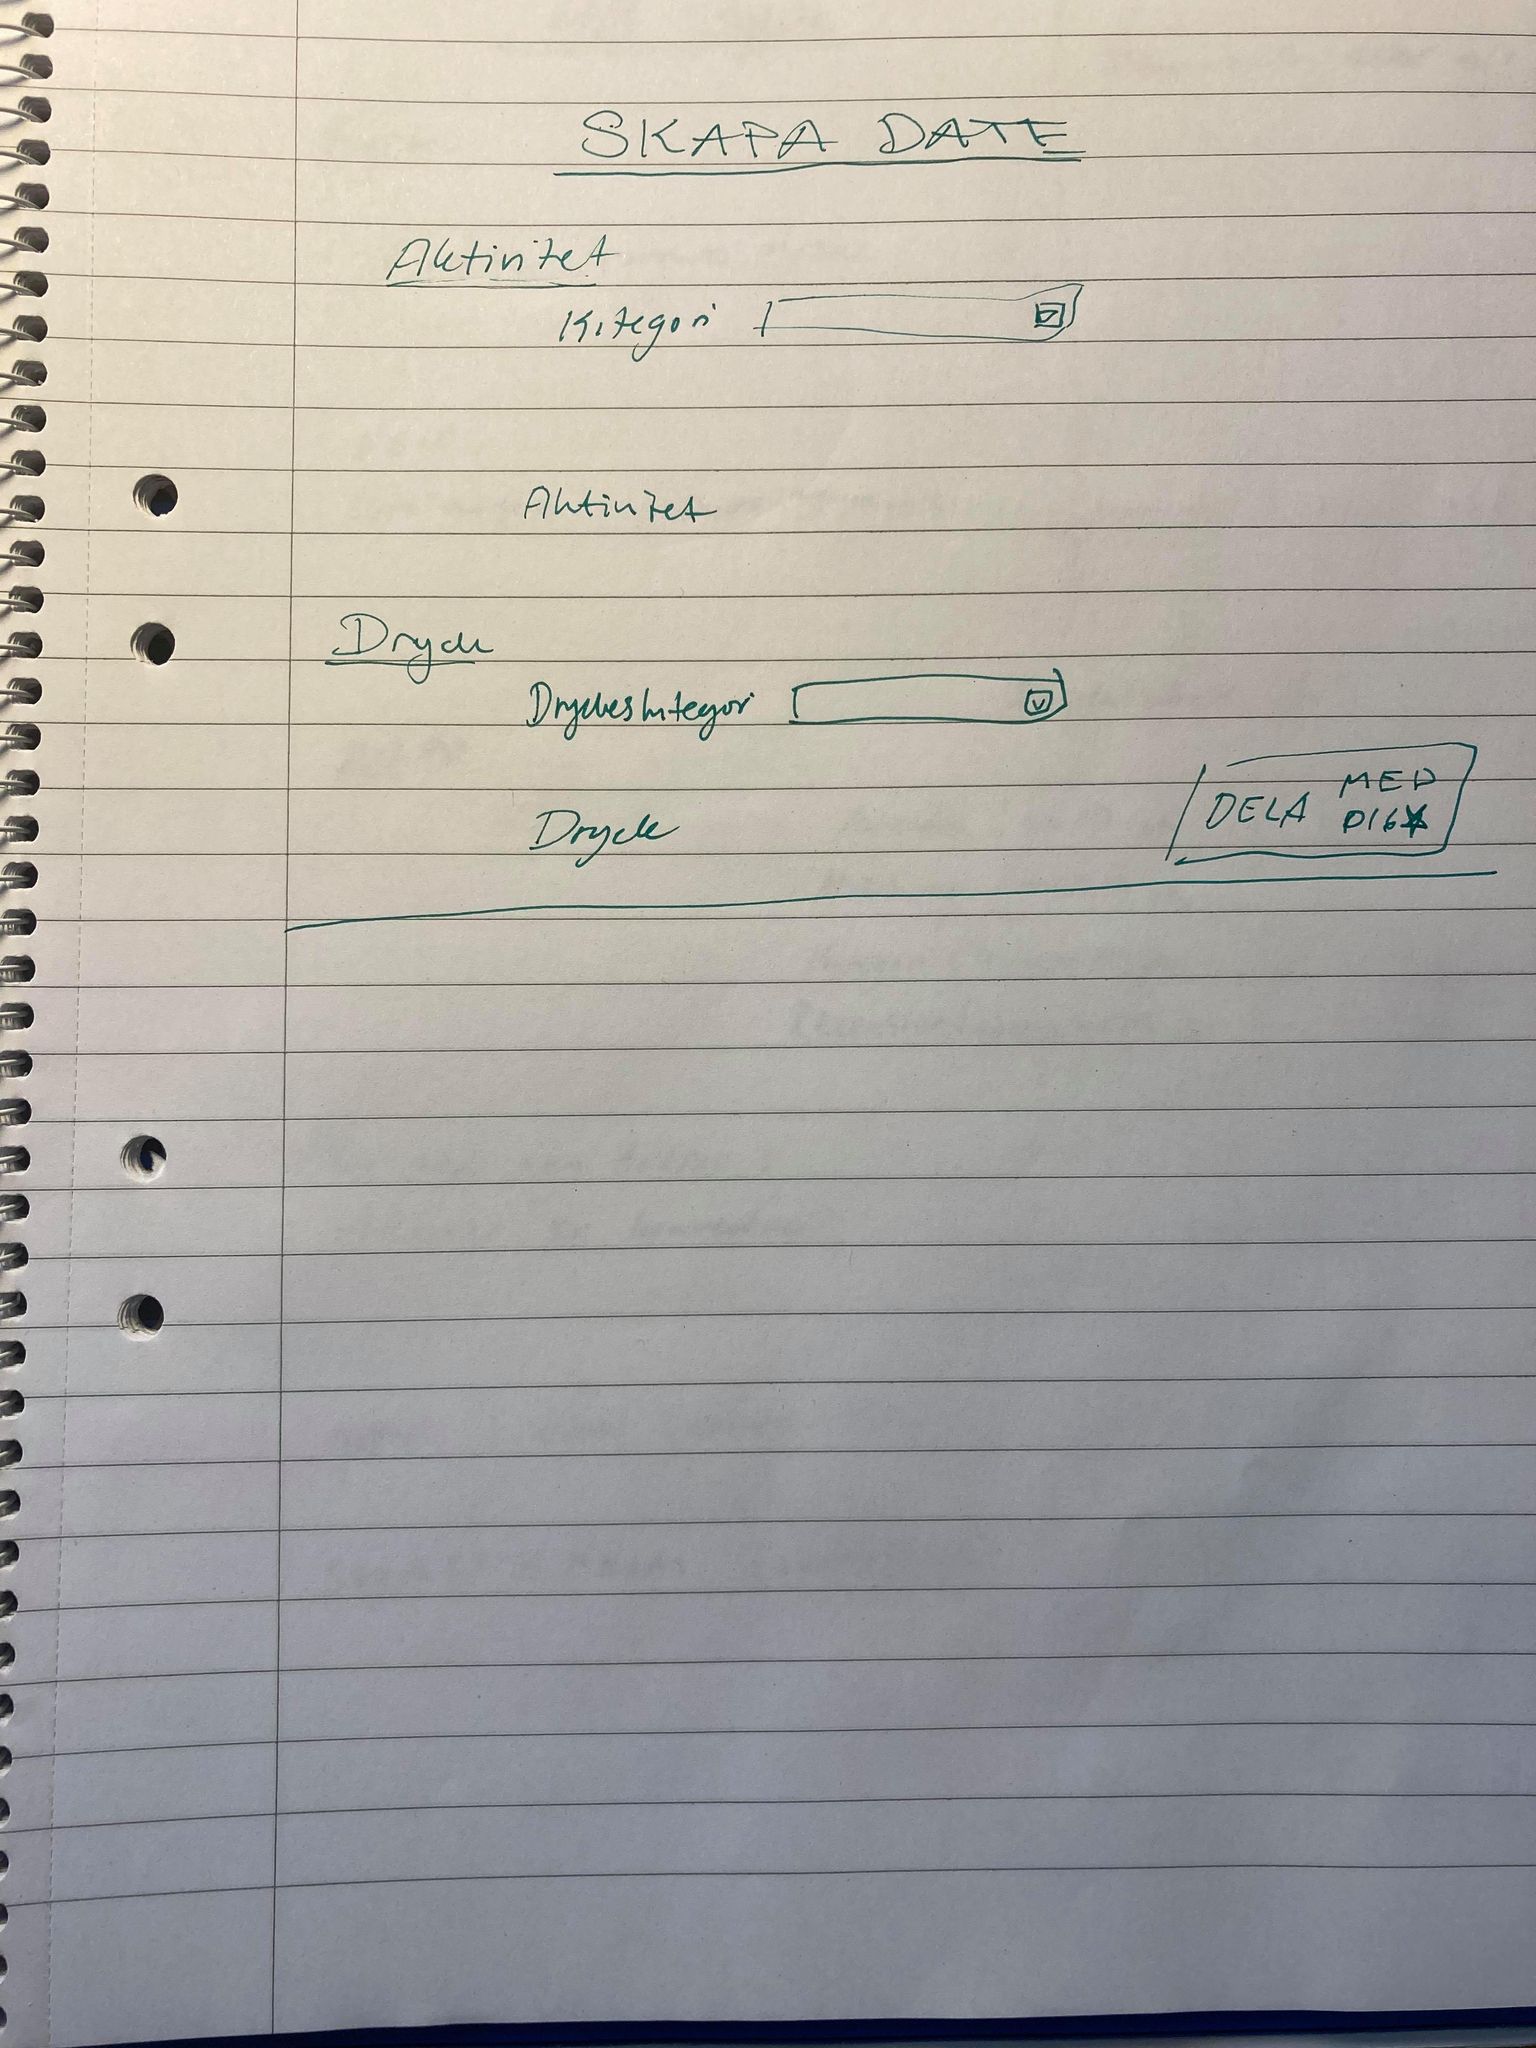 SKAPA DATE
Aktivitet
Kategori
Aktivitet
Dryck
Dryckeskategori
Dryck
DELA MED
DIG